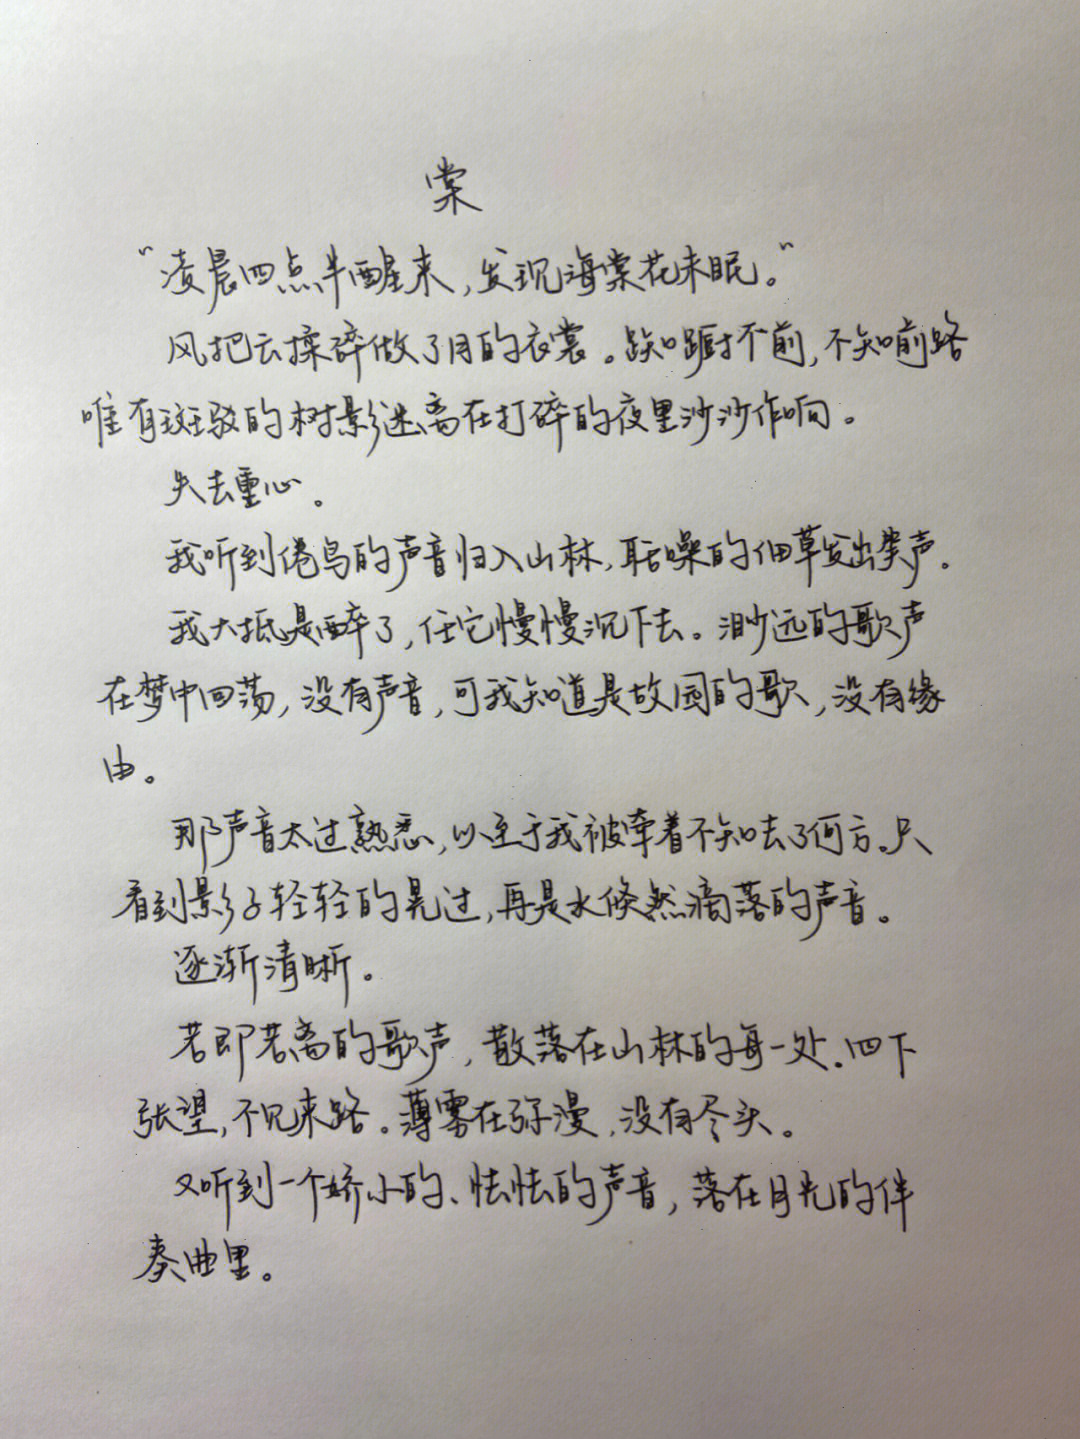 棠
“凌晨四点半醒来，发现海棠花未眠。”
风把云揉碎做了月的衣裳。踟蹰不前，不知前路
唯有斑驳的树影迷离在打碎的夜里沙沙作响。
失去重心。
我听到倦鸟的声音归入山林，聒噪的细草发出笑声。
我大抵是醉了，任它慢慢沉下去。渺远的歌声
在梦中回荡，没有声音，可我知道是故园的歌，没有缘
由。
那声音太过熟悉，以至于我被牵着不知去了何方。只
看到影子轻轻的晃过，再是水倏然滴落的声音。
逐渐清晰。
若即若离的歌声，散落在山林的每一处．四下
张望，不见来路。薄雾在弥漫，没有尽头。
又听到一个娇小的、怯怯的声音，落在月光的伴
奏曲里。